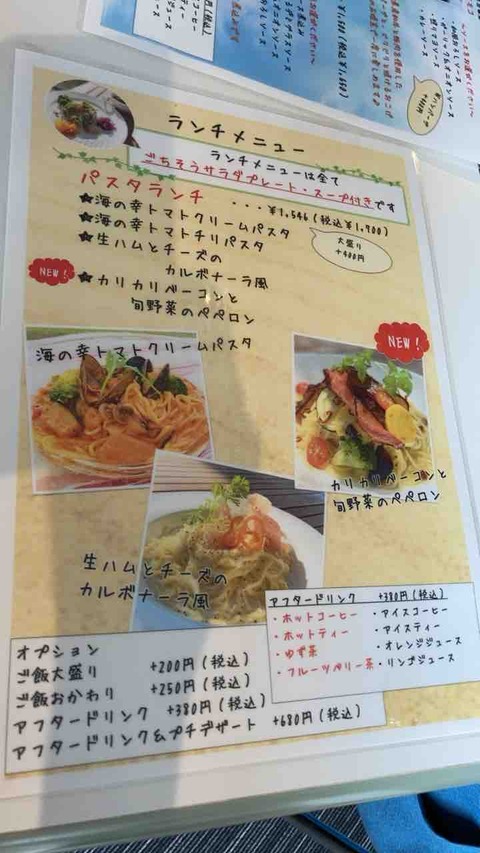 ランチメニュー
ランチメニューは全て
ごちそうサラダプレート・スープ付きです
パスタランチ ・・・¥1,546(税込¥1,700)
★海の幸トマトクリームパスタ
★海の幸トマトチリパスタ
大盛り
+400円
★生ハムとチーズの
カルボナーラ風
NEW!
★カリカリベーコンと
旬野菜のペペロン
海の幸トマトクリームパスタ
NEW!
カリカリベーコンと
旬野菜のペペロン
生ハムとチーズの
カルボナーラ風
アフタードリンク +380円(税込)
・ホットコーヒー ・アイスコーヒー
・ホットティー ・アイスティー
・ゆず茶 ・オレンジジュース
・フルーツベリー茶 ・リンゴジュース
オプション
ご飯大盛り +200円(税込)
ご飯おかわり +250円(税込)
アフタードリンク +380円(税込)
アフタードリンク&プチデザート +680円(税込)